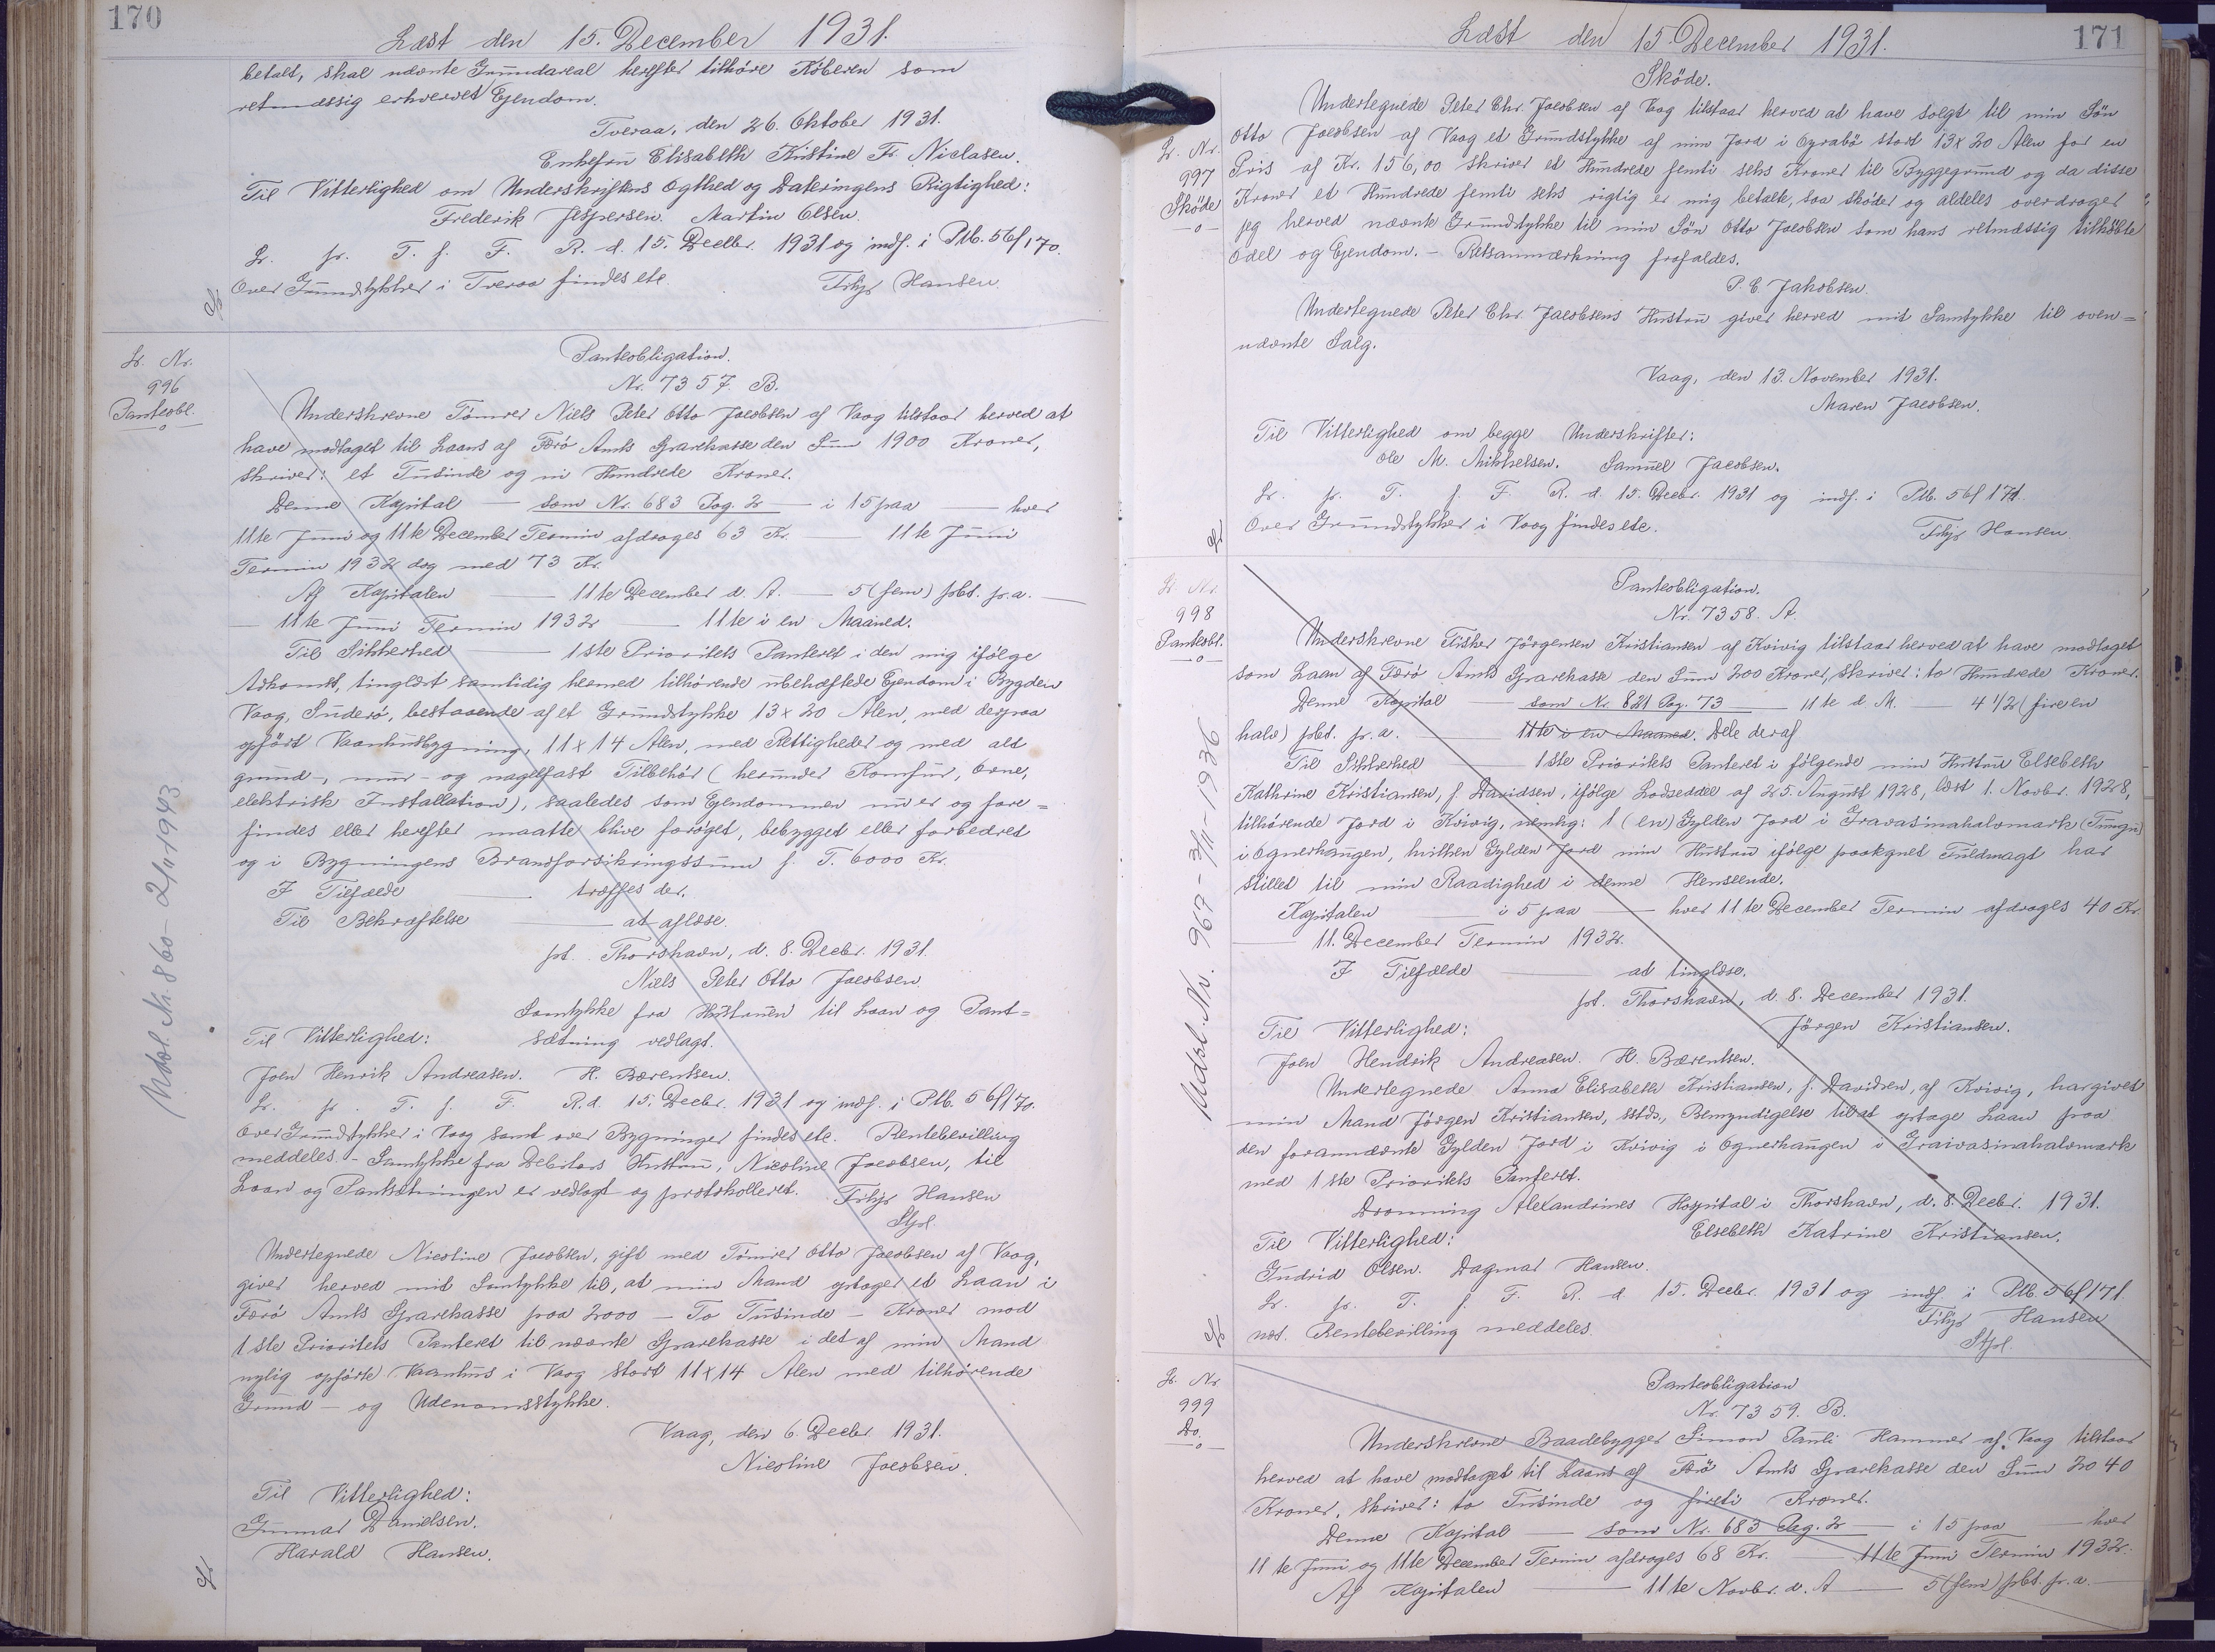 170
Læst den 15. December 1931.
betalt, skal nævnte Grundareal herefter tilhøre Köberen som
retmæssig erhvervet Ejendom.
Tveraa, den 26. Oktober 1931.
Enkefru Elisabeth Kristine Fr. Niclasen.
Til Vitterlighed om Underskriftens Ægthed og Dateringens Rigtighed:
Frederik Jespersen. Martin Olsen.
Lr. pr. T. f. F. R. d. 15. Decbr. 1931 og indf. i Ptb. 56f170.
Over Grundstykker i Tveraa findes etc.
Hansen.
Lr. Nr.
996
Panteobl.
Panteobligation.
Nr. 7357. B.
Underskrevne Tømrer Niels Peter Otto Jacobsen af Vaag tilstaar herved at
have modtaget til Laans af Færö Amts Sparekasse den Sum 1900 Kroner,
skriver: et Tusinde og ni Hundrede Kroner.
Denne Kapital — som Nr. 683 Pag. 2 — i 15 paa — hver
11te Juni og 11te December Termin afdrages 63 Kr. — 11te Juni
Termin 1932 dog med 73 Kr.
Af Kapitalen — 11te December d. A. — 5 (fem) pCt. p. a. —
— 11te Juni Termin 1932 — 11te i en Maaned.
Til Sikkerhed — 1ste Prioritets Panteret i den mig ifølge
Adkomst, tinglæst samtidig hermed tilhørende ubehæftede Ejendom i Bygden
Vaag, Suderø, bestaaende af et Grundstykke 13 x 20 Alen, med derpaa
opført Vaanhusbygning, 11 x 14 Alen, med Rettigheder og med alt
grund-, mur- og nagelfast Tilbehör (herunder Komfur, Ovne,
elektrisk Installation), saaledes som Ejendommen nu er og fore=
findes eller herefter maatte blive forøget, bebygget eller forbedret
og i Bygningens Brandforsikringssum f. T. 6000 Kr.
I Tilfælde — træffes der.
Til Bekræftelse — at aflæse.
pt. Thorshavn, d. 8. Decbr. 1931.
Niels Peter Otto Jacobsen.
Samtykke fra Hustruen til Laan og Pant=
Til Vitterlighed: sætning vedlagt.
Joen Henrik Andreasen. H. Bærentsen.
Lr. pr. T. f. F. R. d. 15. Decbr. 1931 og indf. i Ptb. 56f170.
Over Grundstykker i Vaag samt over Bygninger findes etc. Rentebevilling
meddeles. - Samtykke fra Debitors Hustru, Nicoline Jacobsen, til
Laan og Pantsætningen er vedlagt og protokolleret. Hansen
Undertegnede Nicoline Jacobsen, gift med Tömrer Otto Jacobsen af Vaag,
giver herved mit Samtykke til, at min Mand optager et Laan i
Færö Amts Sparekasse paa 2000 — To Tusinde — Kroner mod
1ste Prioritets Panteret til nævnte Sparekasse i det af min Mand
nylig opførte Vaanhus i Vaag stort 11 x 14 Alen med tilhørende
Grund - og Udenomsstykke.
Vaag, den 6. Decbr. 1931.
Nicoline Jacobsen.
Til Vitterlighed:
Gunnar Danielsen.
Harald Hansen.
Udsl. Nr. 860 - 2/11 1943
171
Læst den 15. December 1931.
Lr. Nr.
997
Sköde
Sköde.
Undertegnede Peter Chr. Jacobsen af Vaag tilstaar herved at have solgt til min Sön
Otto Jacobsen af Vaag et Grundstykke af min Jord i Oyrabö stort 13 x 20 Alen for en
Pris af Kr. 156,00 skriver et Hundrede femti seks Kroner til Byggegrund og da disse
Kroner et Hundrede femti seks rigtig er mig betalte, saa sköder og aldeles overdrager
jeg herved nævnte Grundstykke til min Sön Otto Jacobsen som hans retmæssig tilköbte
Odel og Ejendom. - Retsanmærkning frafaldes.
P. C. Jakobsen.
Undertegnede Peter Chr. Jacobsens Hustru giver herved mit Samtykke til oven=
nævnte Salg.
Vaag, den 13. November 1931.
Maren Jacobsen.
Til Vitterlighed om begge Underskrifter:
Ole M. Mikkelsen. Samuel Jacobsen.
Lr. pr. T. f. F. R. d. 15. Decbr. 1931 og indf. i Ptb. 56f171.
Over Grundstykker i Vaag findes etc.
Hansen.
Lr. Nr.
998
Panteobl.
Panteobligation.
Nr. 7358. A.
Underskrevne Fisker Jörgensen Kristiansen af Kvivig tilstaar herved at have modtaget
som Laan af Færö Amts Sparekasse den Sum 200 Kroner, skriver: to Hundrede Kroner.
Denne Kapital — som Nr. 821 Pag. 73 — 11te d. M. — 4 1/2 (fire en
halv) pCt. p. a. — 11te i en Maaned. Dele deraf
Til Sikkerhed — 1ste Prioritets Panteret i følgende min Hustru Elsebeth
Kathrine Kristiansen, f. Davidsen, ifölge Lodseddel af 25. August 1928, læst 1. Novbr. 1928,
tilhörende Jord i Kvivig, nemlig: 1 (en) Gylden Jord i Gravasinahalvmark (Tungu)
i Ognerhaugen, hvilken Gylden Jord min Hustru ifölge paategnet Fuldmagt har
stillet til min Raadighed i denne Henseende.
Kapitalen — i 5 paa — hver 11te December Termin afdrages 40 Kr.
— 11. December Termin 1932.
I Tilfælde — at tinglæse.
pt. Thorshavn, d. 8. December 1931.
Til Vitterlighed: Jörgen Kristiansen.
Joen Hendrik Andreasen. H. Bærentsen.
Undertegnede Anna Elisabeth Kristiansen, f. Davidsen, af Kvivig, har givet
min Mand Jörgen Kristiansen, sstds., Bemyndigelse til at optage Laan paa
den forannævnte Gylden Jord i Kvivig i Ognerhaugen i Graivasinahalvmark
med 1ste Prioritets Panteret.
Dronning Alexandrines Hospital i Thorshavn, d. 8. Decbr. 1931.
Til Vitterlighed: Elsebeth Katrine Kristiansen.
Gudrid Olsen. Dagmar Hansen.
Lr. pr. T. f. F. R. d. 15. Decbr. 1931 og indf. i Ptb. 56f171.
Rentebevilling meddeles. Hansen
Udsl. Nr. 967 - 3/11 - 1936
Lr. Nr.
999
Do.
Panteobligation
Nr. 7359. B.
Underskrevne Baadebygger Simon Pauli Hammer af Vaag tilstaar
herved at have modtaget til Laans af Færö Amts Sparekasse den Sum 2040
Kroner, skriver: to Tusinde og fireti Kroner.
Denne Kapital — som Nr. 683 Pag. 2 — i 15 paa — hver
11te Juni og 11te December Termin afdrages 68 Kr. — 11te Juni Termin 1932.
Af Kapitalen — 11te Novbr. d. A — 5 (fem) pCt. p. a. —